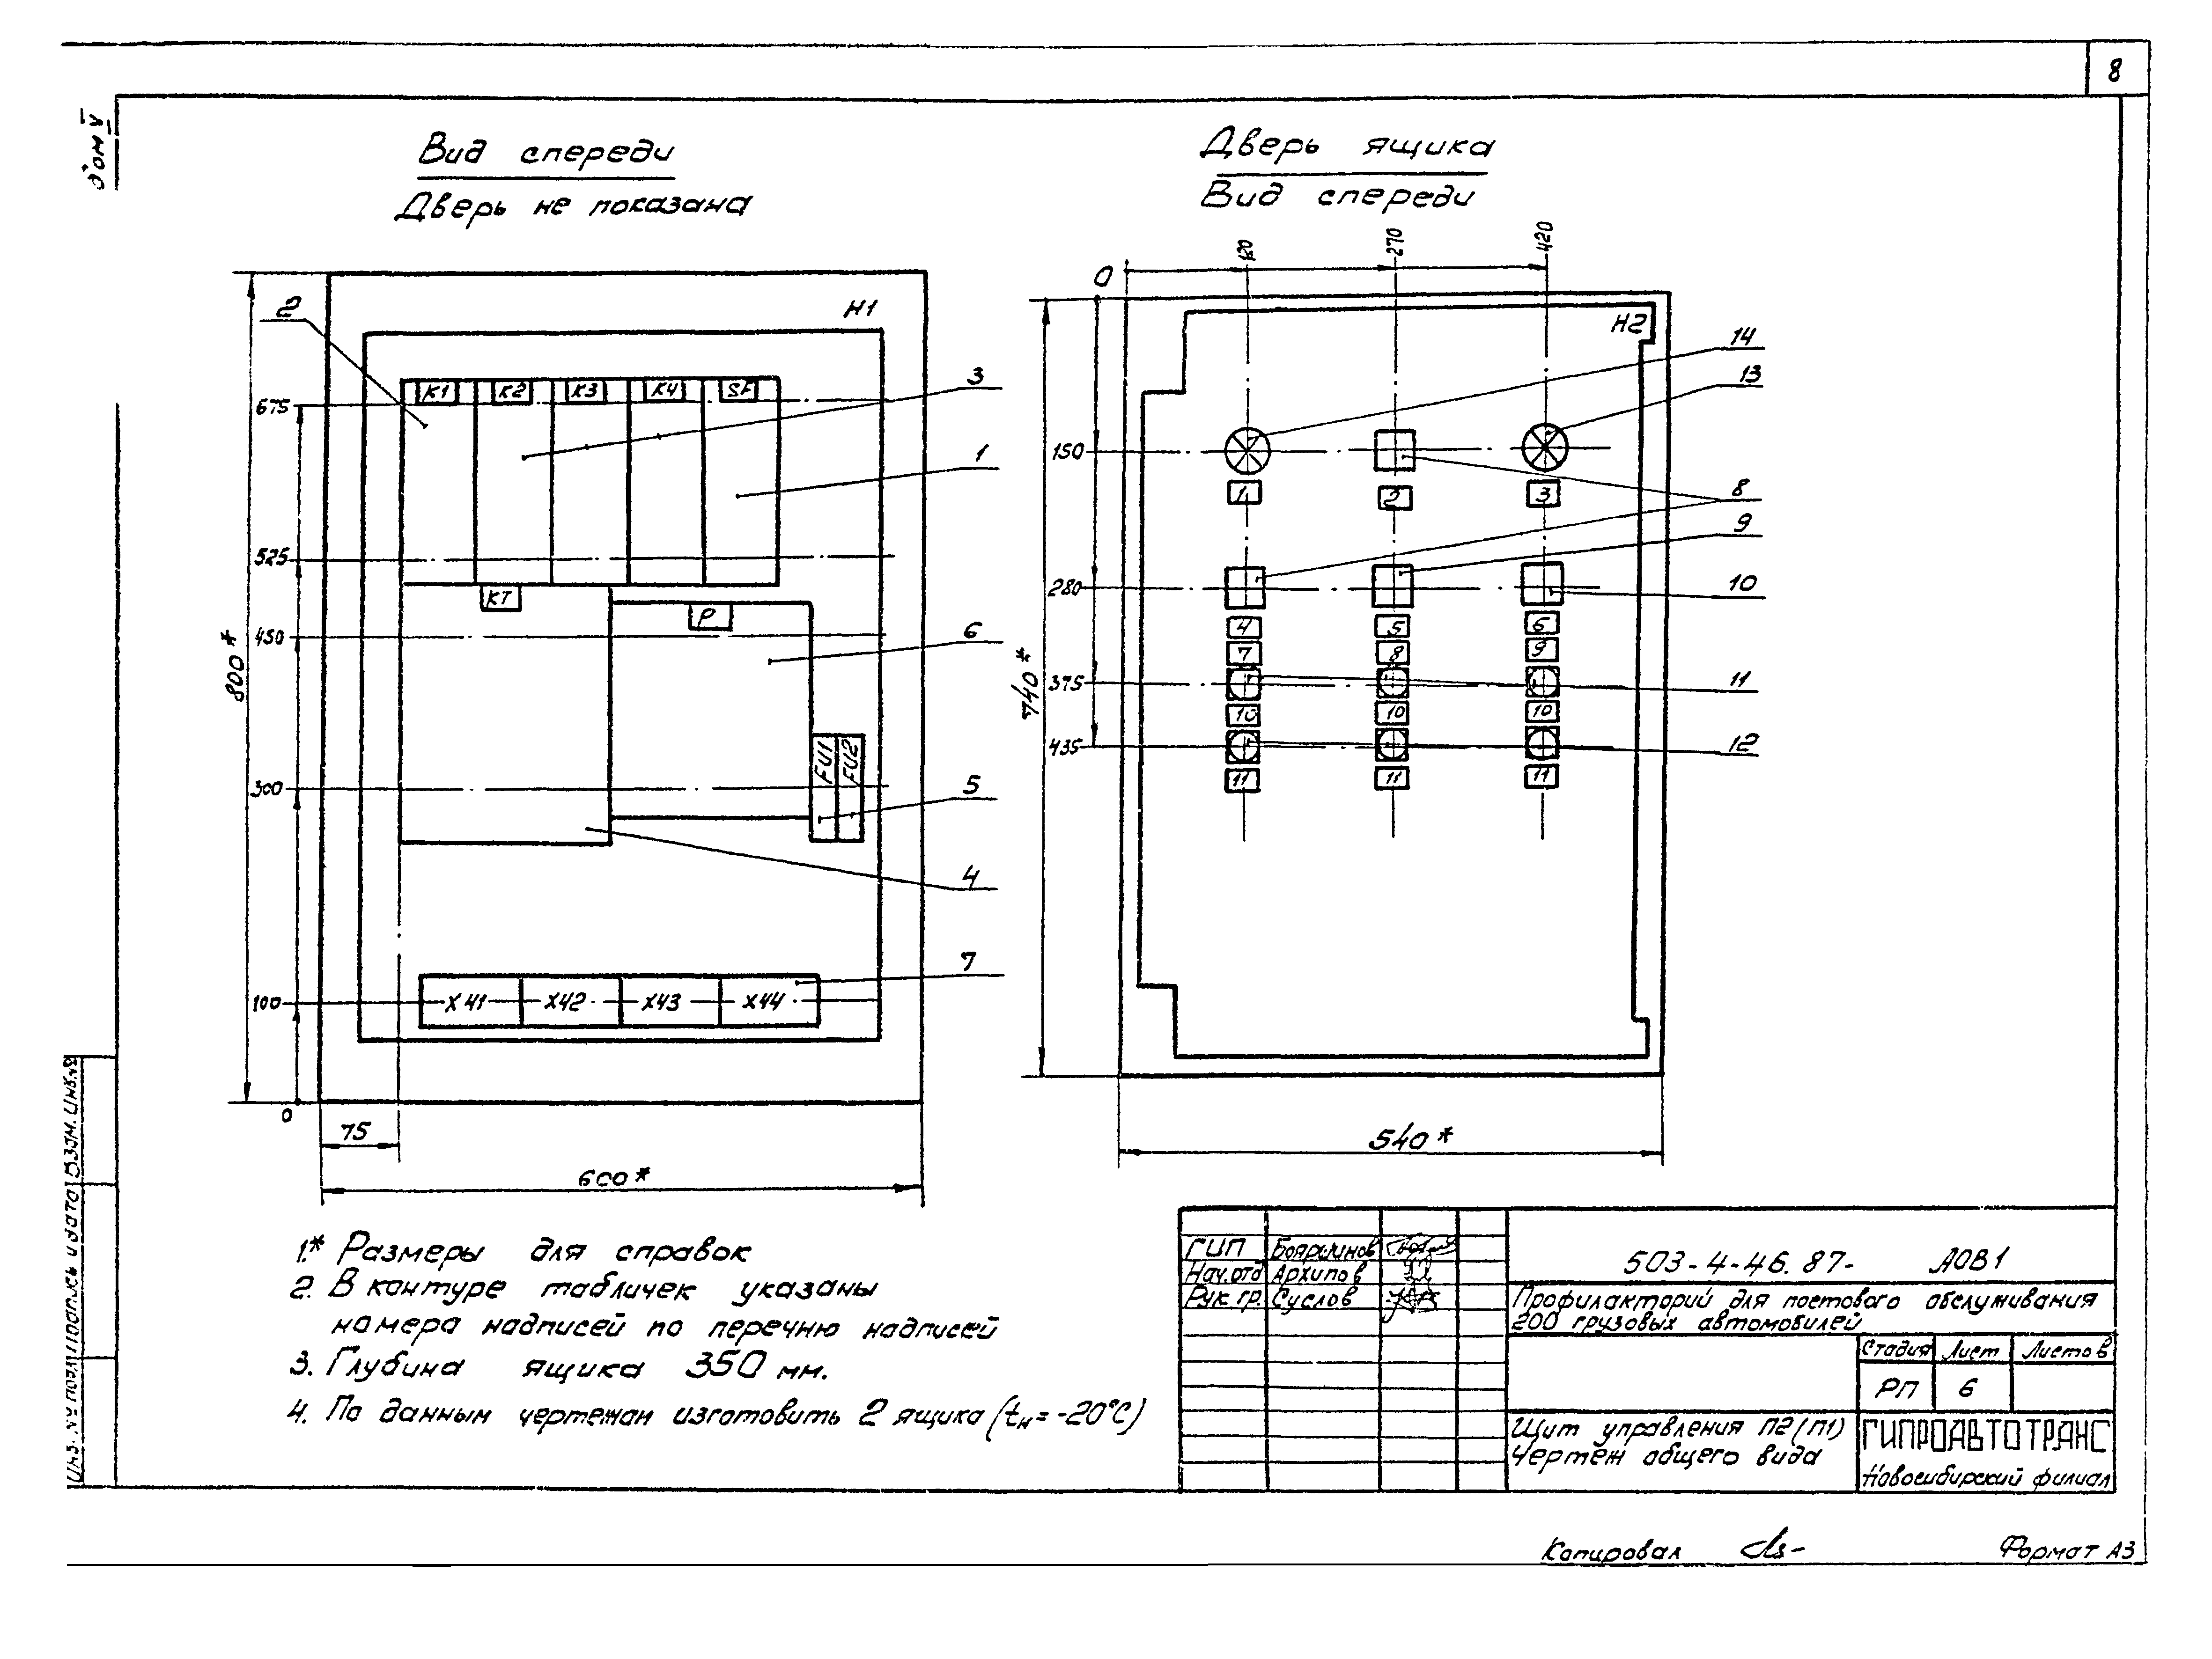 8
Вид спереди
Дверь не показана
Дверь ящика
Вид спереди
H1
2
K1 K2 K3 K4 SF
3
675
1
525
KT
P
6
450
800*
FU1 FU2
300
5
4
7
X41 X42 X43 X44
100
0
75
600*
0 120 270 420
H2
14
13
150
1 2 3
8
9
280
10
4 5 6
7 8 9
375
11
10 10 10
435
12
11 11 11
740*
540*
1.* Размеры для справок
2. В контуре табличек указаны
номера надписей по перечню надписей
3. Глубина ящика 350 мм.
4. По данным чертежам изготовить 2 ящика (tн = -20°C)
ГИП
Нач.отд Архипов
Рук. гр. Суслов
503-4-46.87- АОВ1
Профилакторий для постового обслуживания
200 грузовых автомобилей
Стадия Лист Листов
РП 6
Щит управления П2(П1)
Чертеж общего вида
ГИПРОАВТОТРАНС
Новосибирский филиал
Копировал
Формат А3
Инв. № подл Подпись и дата Взам. инв.№